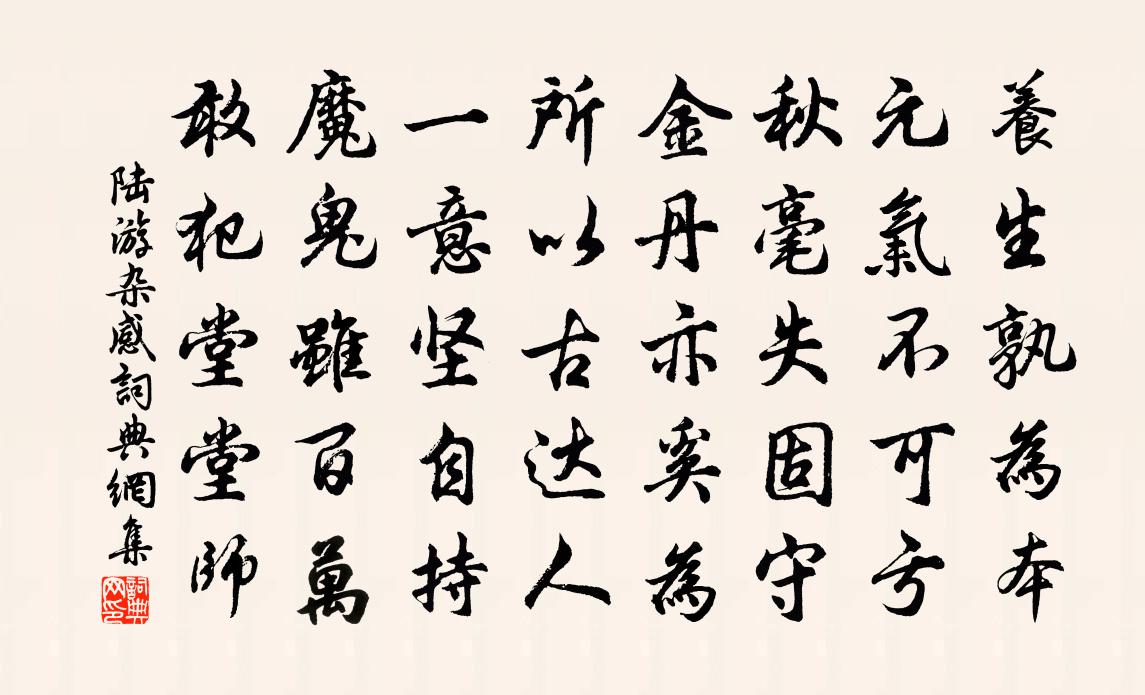 養生孰為本
元氣不可亏
秋毫失固守
金丹亦奚為
所以古达人
一意坚自持
魔鬼雖百萬
敢犯堂堂師
陆游杂感詞典網集
詞典
网印